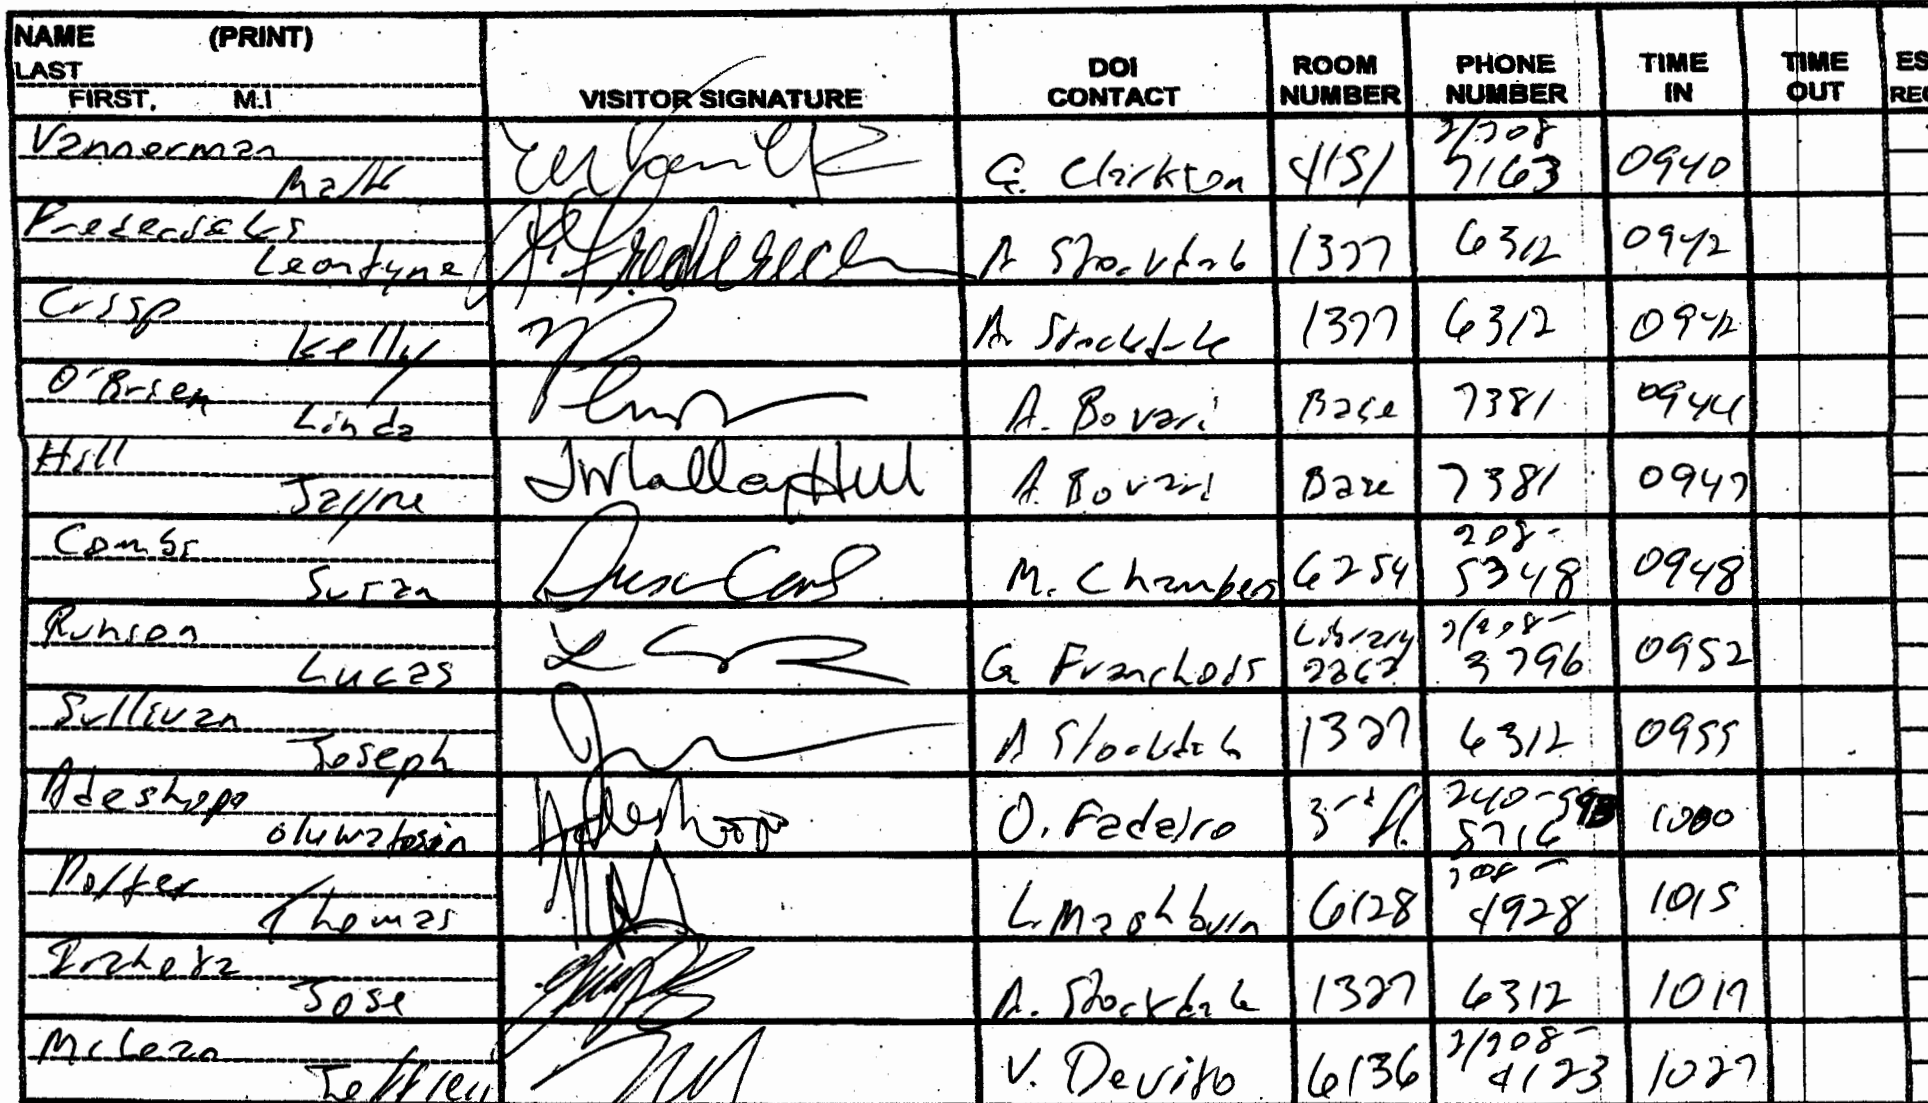 NAME (PRINT)
LAST
FIRST, M.I
VISITOR SIGNATURE
DOI CONTACT
ROOM NUMBER
PHONE NUMBER
TIME IN
TIME OUT
Vannerman
G. Clarkton 4151 7163 0940
Fredericks
Leontyne A Stockdale 1327 6312 0942
Crisp
Kelly A. Stockdale 1327 6312 0942
O'Brien
Linda A. Bovari Base 7381 0944
Hill
Jayne A. Bovari Base 7381 0947
Combs 208-
Susan M. Chambers 6254 5348 0948
Runion Library 2/208-
Lucas G Franchois 2262 3796 0952
Sullivan
Joseph A Stockdale 1327 6312 0955
Adeshopo 240-
oluwatosin O. Fadairo 3rd fl. 5716 1000
Porter 208-
Thomas L. Mashburn 6128 4928 1015
Jose A. Stockdale 1327 6312 1017
McLean 2/208-
Jeffrey V. Devito 6136 4123 1027